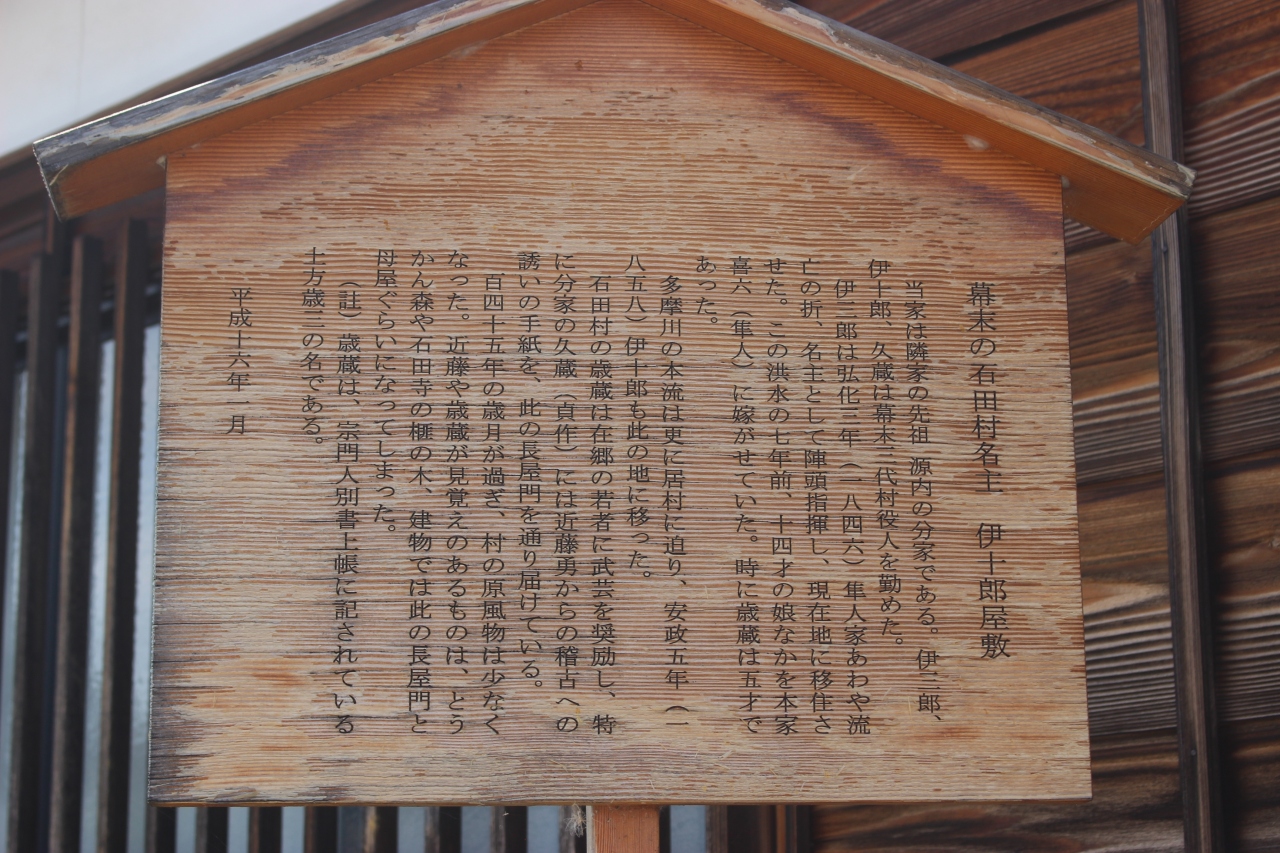 幕末の石田村名主　伊十郎屋敷
当家は隣家の先祖 源内の分家である。伊二郎、
伊十郎、久蔵は幕末三代村役人を勤めた。
伊二郎は弘化三年（一八四六）隼人家あわや流
亡の折、名主として陣頭指揮し、現在地に移住さ
せた。この洪水の七年前、十四才の娘なかを本家
喜六（隼人）に嫁がせていた。時に歳蔵は五才で
あった。
多摩川の本流は更に居村に迫り、安政五年（一
八五八）伊十郎も此の地に移った。
石田村の歳蔵は在郷の若者に武芸を奨励し、特
に分家の久蔵（貞作）には近藤勇からの稽古への
誘いの手紙を、此の長屋門を通り届けている。
百四十五年の歳月が過ぎ、村の原風物は少なく
なった。近藤や歳蔵が見覚えのあるものは、とう
かん森や石田寺の榧の木、建物では此の長屋門と
母屋ぐらいになってしまった。
（註）歳蔵は、宗門人別書上帳に記されている
土方歳三の名である。
平成十六年一月